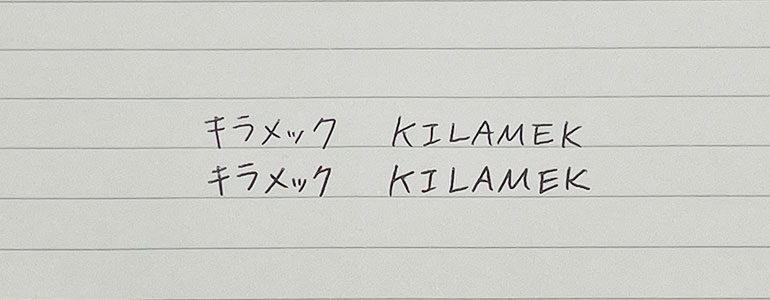 キラメック KILAMEK
キラメック KILAMEK